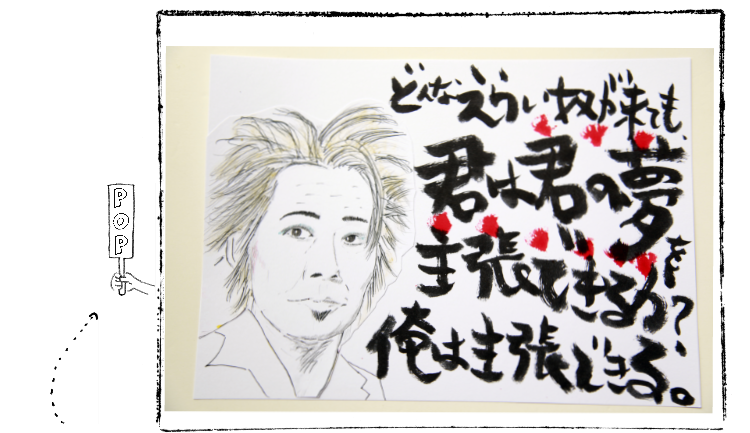 POP
どんなえらい奴が来ても、
君は君の夢を
主張できるか?
俺は主張できる。